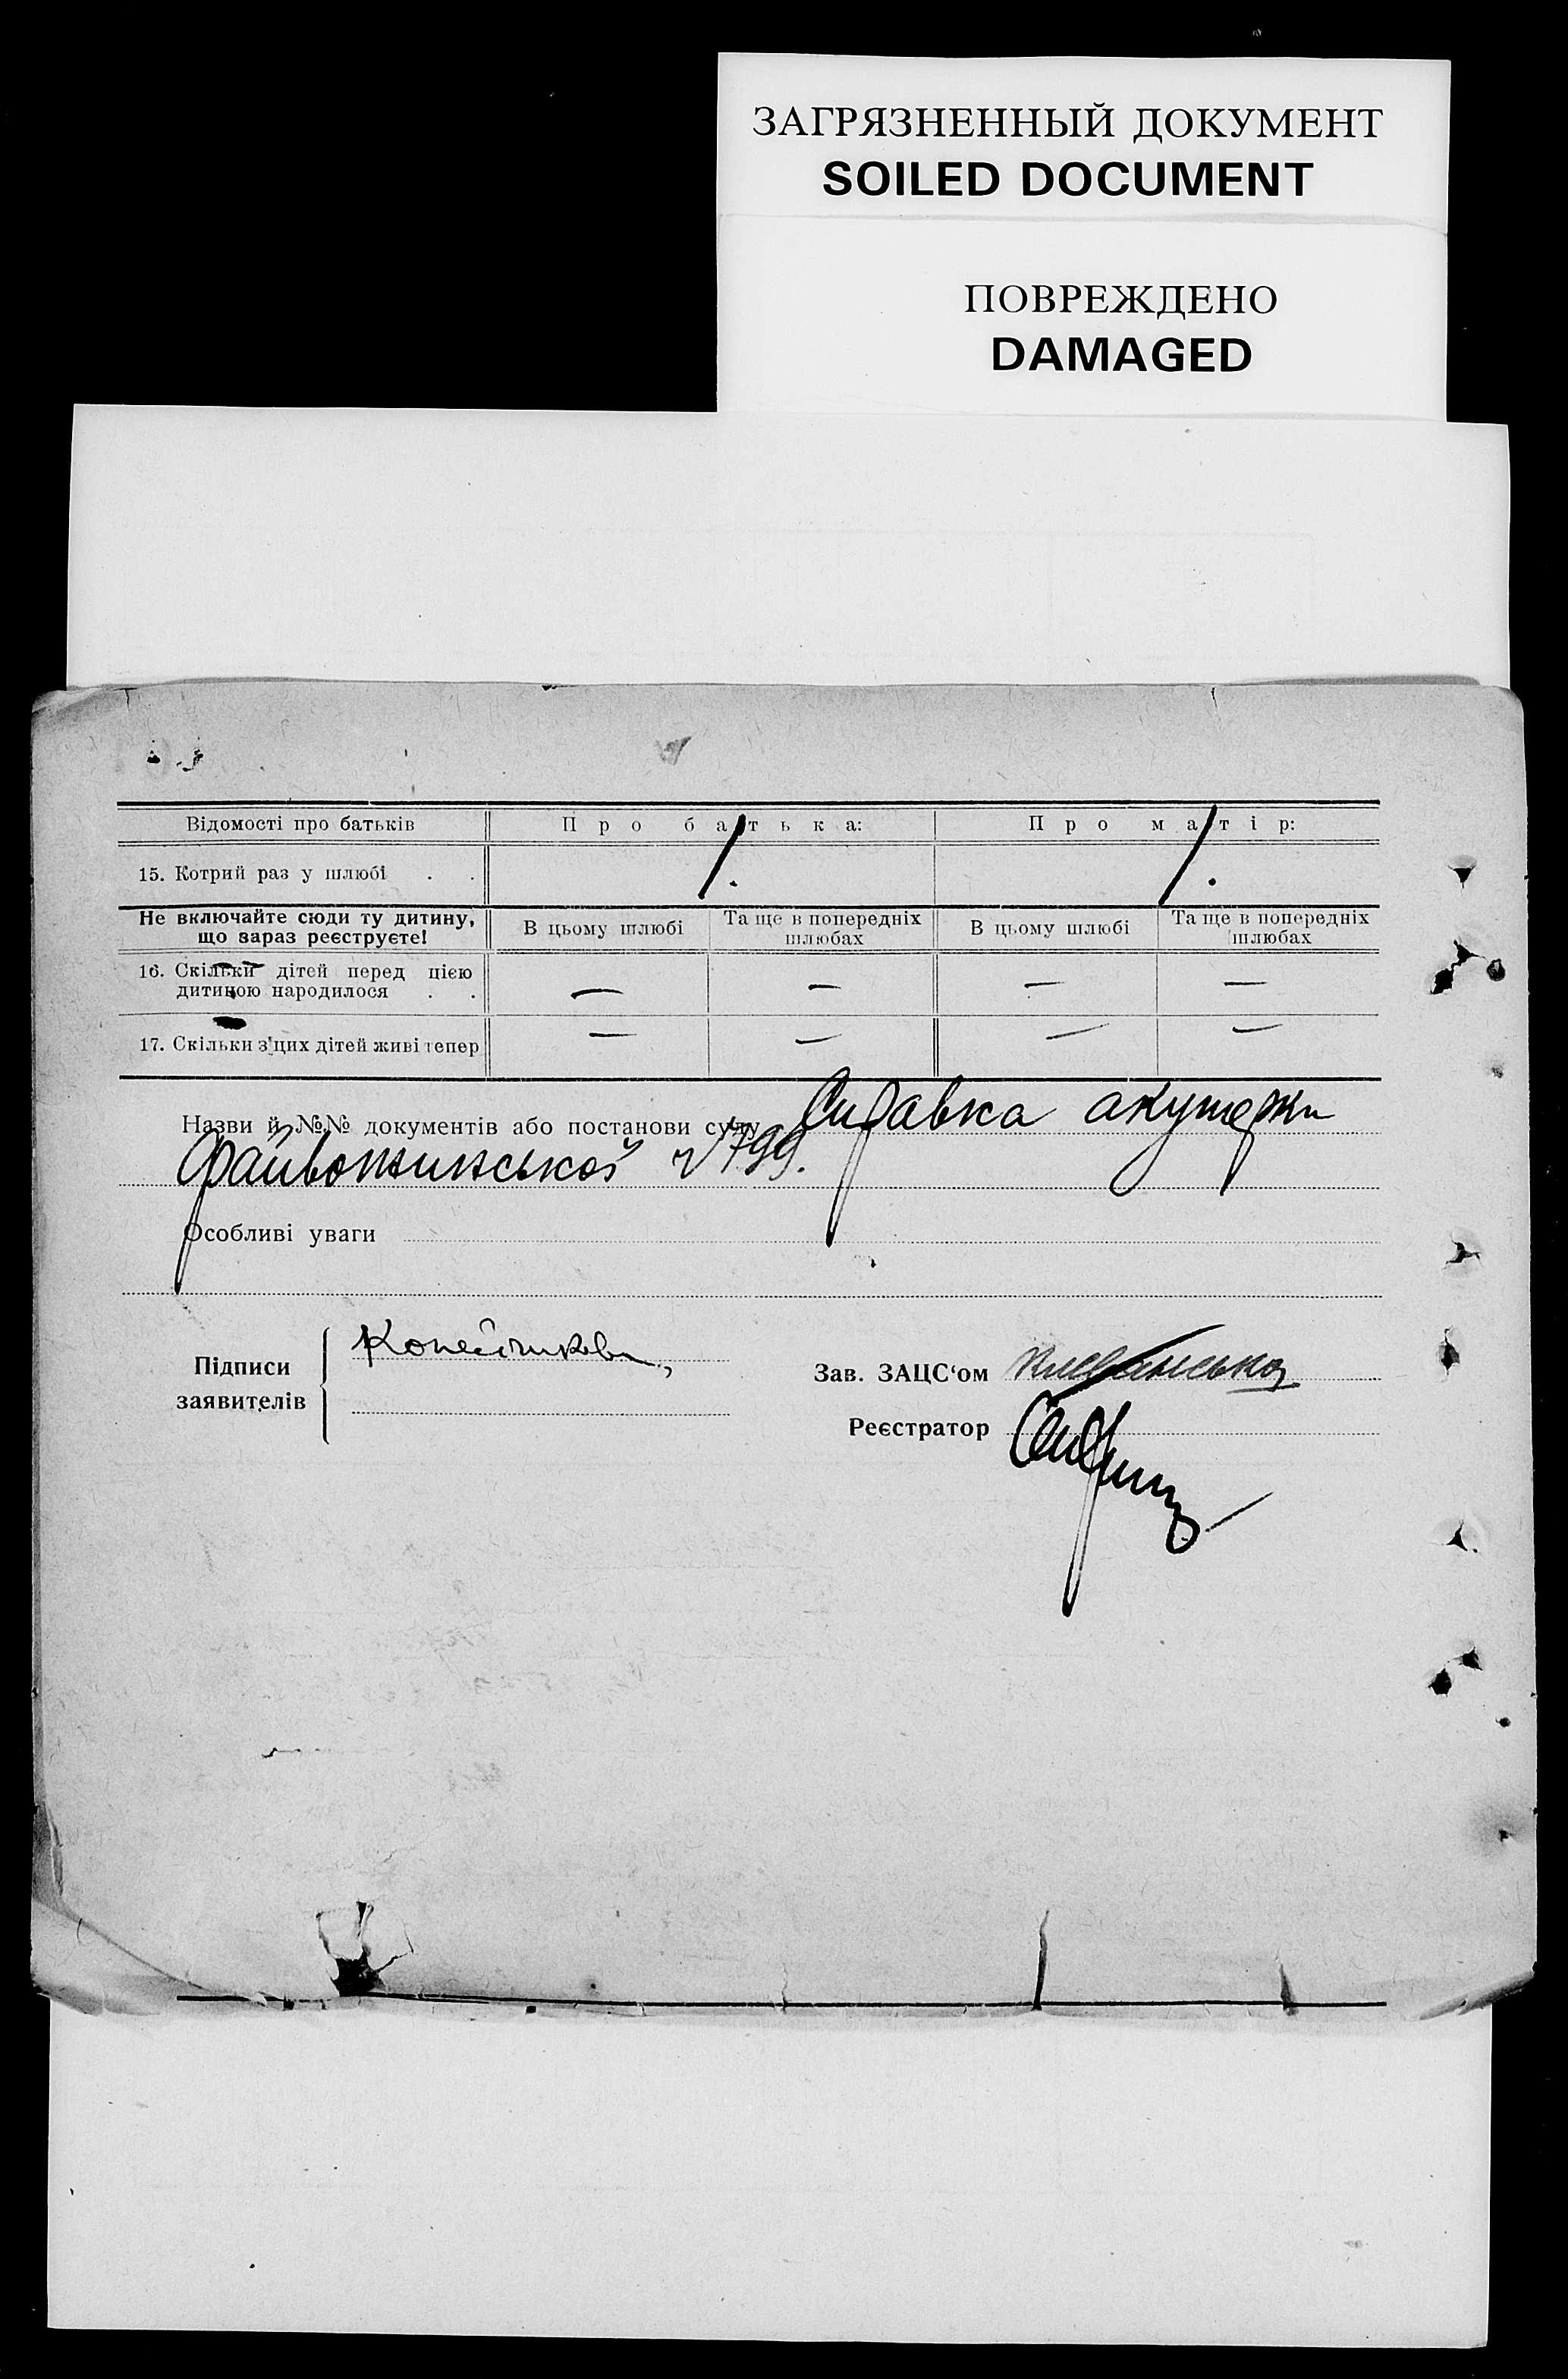 ЗАГРЯЗНЕННЫЙ ДОКУМЕНТ
SOILED DOCUMENT
ПОВРЕЖДЕНО
DAMAGED
Відомості про батьків Про батька: Про матір:
15. Котрий раз у шлюбі . . 1. 1.
Не включайте сюди ту дитину, що зараз реєструєте! В цьому шлюбі Та ще в попередніх шлюбах В цьому шлюбі Та ще в попередніх шлюбах
16. Скільки дітей перед цією дитиною народилося . . — — — —
17. Скільки з'цих дітей живі тепер — — — —
Назви й №№ документів або постанови суду Справка акушерки
№ 799.
Особливі уваги
Підписи заявителів
Зав. ЗАЦС'ом
Реєстратор